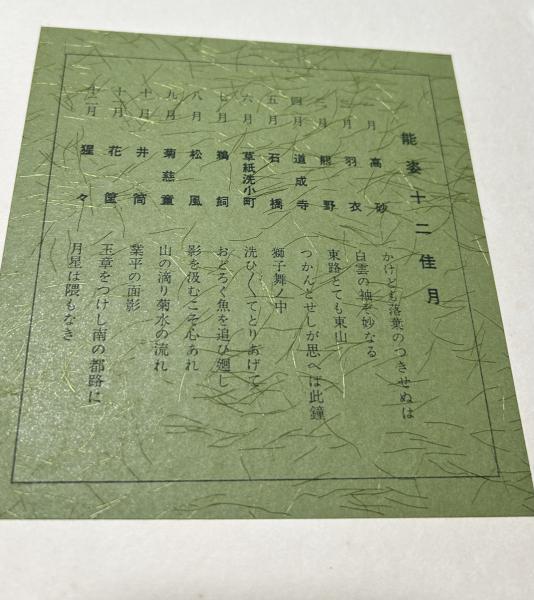 能姿十二佳月
一月 高砂 かけども落葉のつきせぬは
二月 羽衣 白雲の袖ぞ妙なる
三月 熊野 東路とても東山
四月 道成寺 つかんとせしが思へば此鐘
五月 石橋 獅子舞ノ中
六月 草紙洗小町 洗ひ〱てとりあげて
七月 鵜飼 おどろく魚を追ひ廻し
八月 松風 影を汲むこそ心あれ
九月 菊慈童 山の滴り菊水の流れ
十月 井筒 業平の面影
十一月 花筐 玉章をつけし南の都路に
十二月 猩々 月星は隈もなき